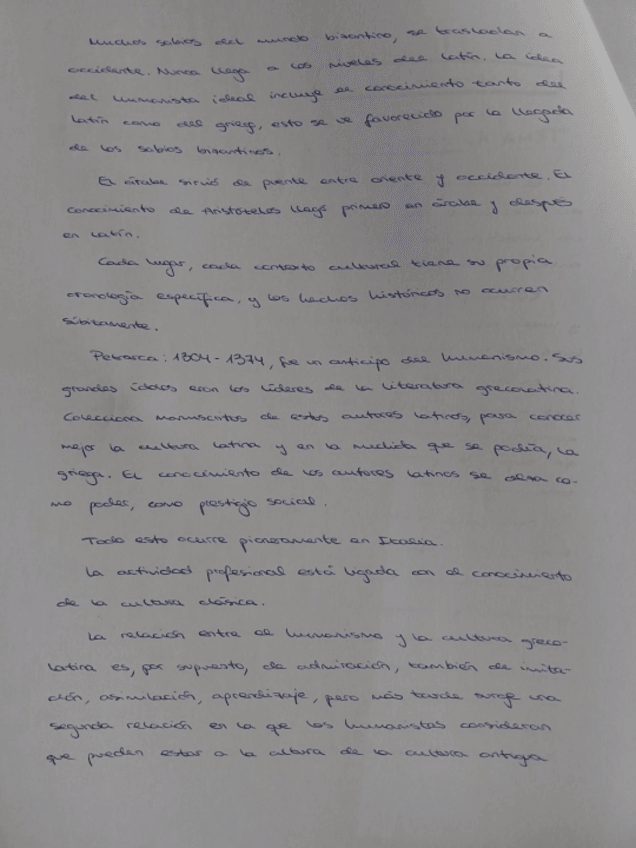 Muchos sabios del mundo bizantino, se trasladan a
occidente. Nunca llega a los niveles del latín. La idea
del humanista ideal incluye el conocimiento tanto del
latín como del griego, esto se ve favorecido por la llegada
de los sabios bizantinos.
El árabe sirvió de puente entre oriente y occidente. El
conocimiento de Aristóteles llegó primero en árabe y después
en latín.
Cada lugar, cada contexto cultural tiene su propia
cronología específica, y los hechos históricos no ocurren
súbitamente.
Petrarca: 1304-1374, fue un anticipo del humanismo. Sus
grandes ídolos eran los líderes de la literatura grecolatina.
Colecciona manuscritos de estos autores latinos, para conocer
mejor la cultura latina y en la medida que se podía, la
griega. El conocimiento de los autores latinos se co-
mo poder, como prestigio social.
Todo esto ocurre pioneramente en Italia.
La actividad profesional está ligada con el conocimiento
de la cultura clásica.
La relación entre el humanismo y la cultura greco-
latina es, por supuesto, de admiración, también de imita-
ción, asimilación, aprendizaje, pero más tarde surge una
segunda relación en la que los humanistas consideran
que pueden estar a la altura de la cultura antigua